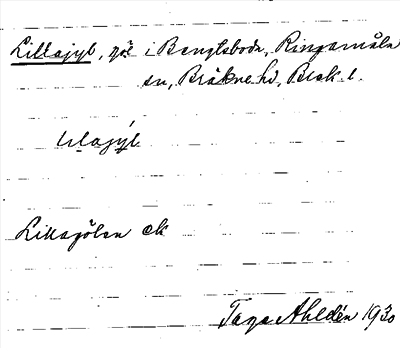 Lillagyl, göl i Bengtsboda, Ringamåla
sn, Bräkne hd, Blek. l.
lılagyl
Lillagölen ek
Tage Ahldén 1930